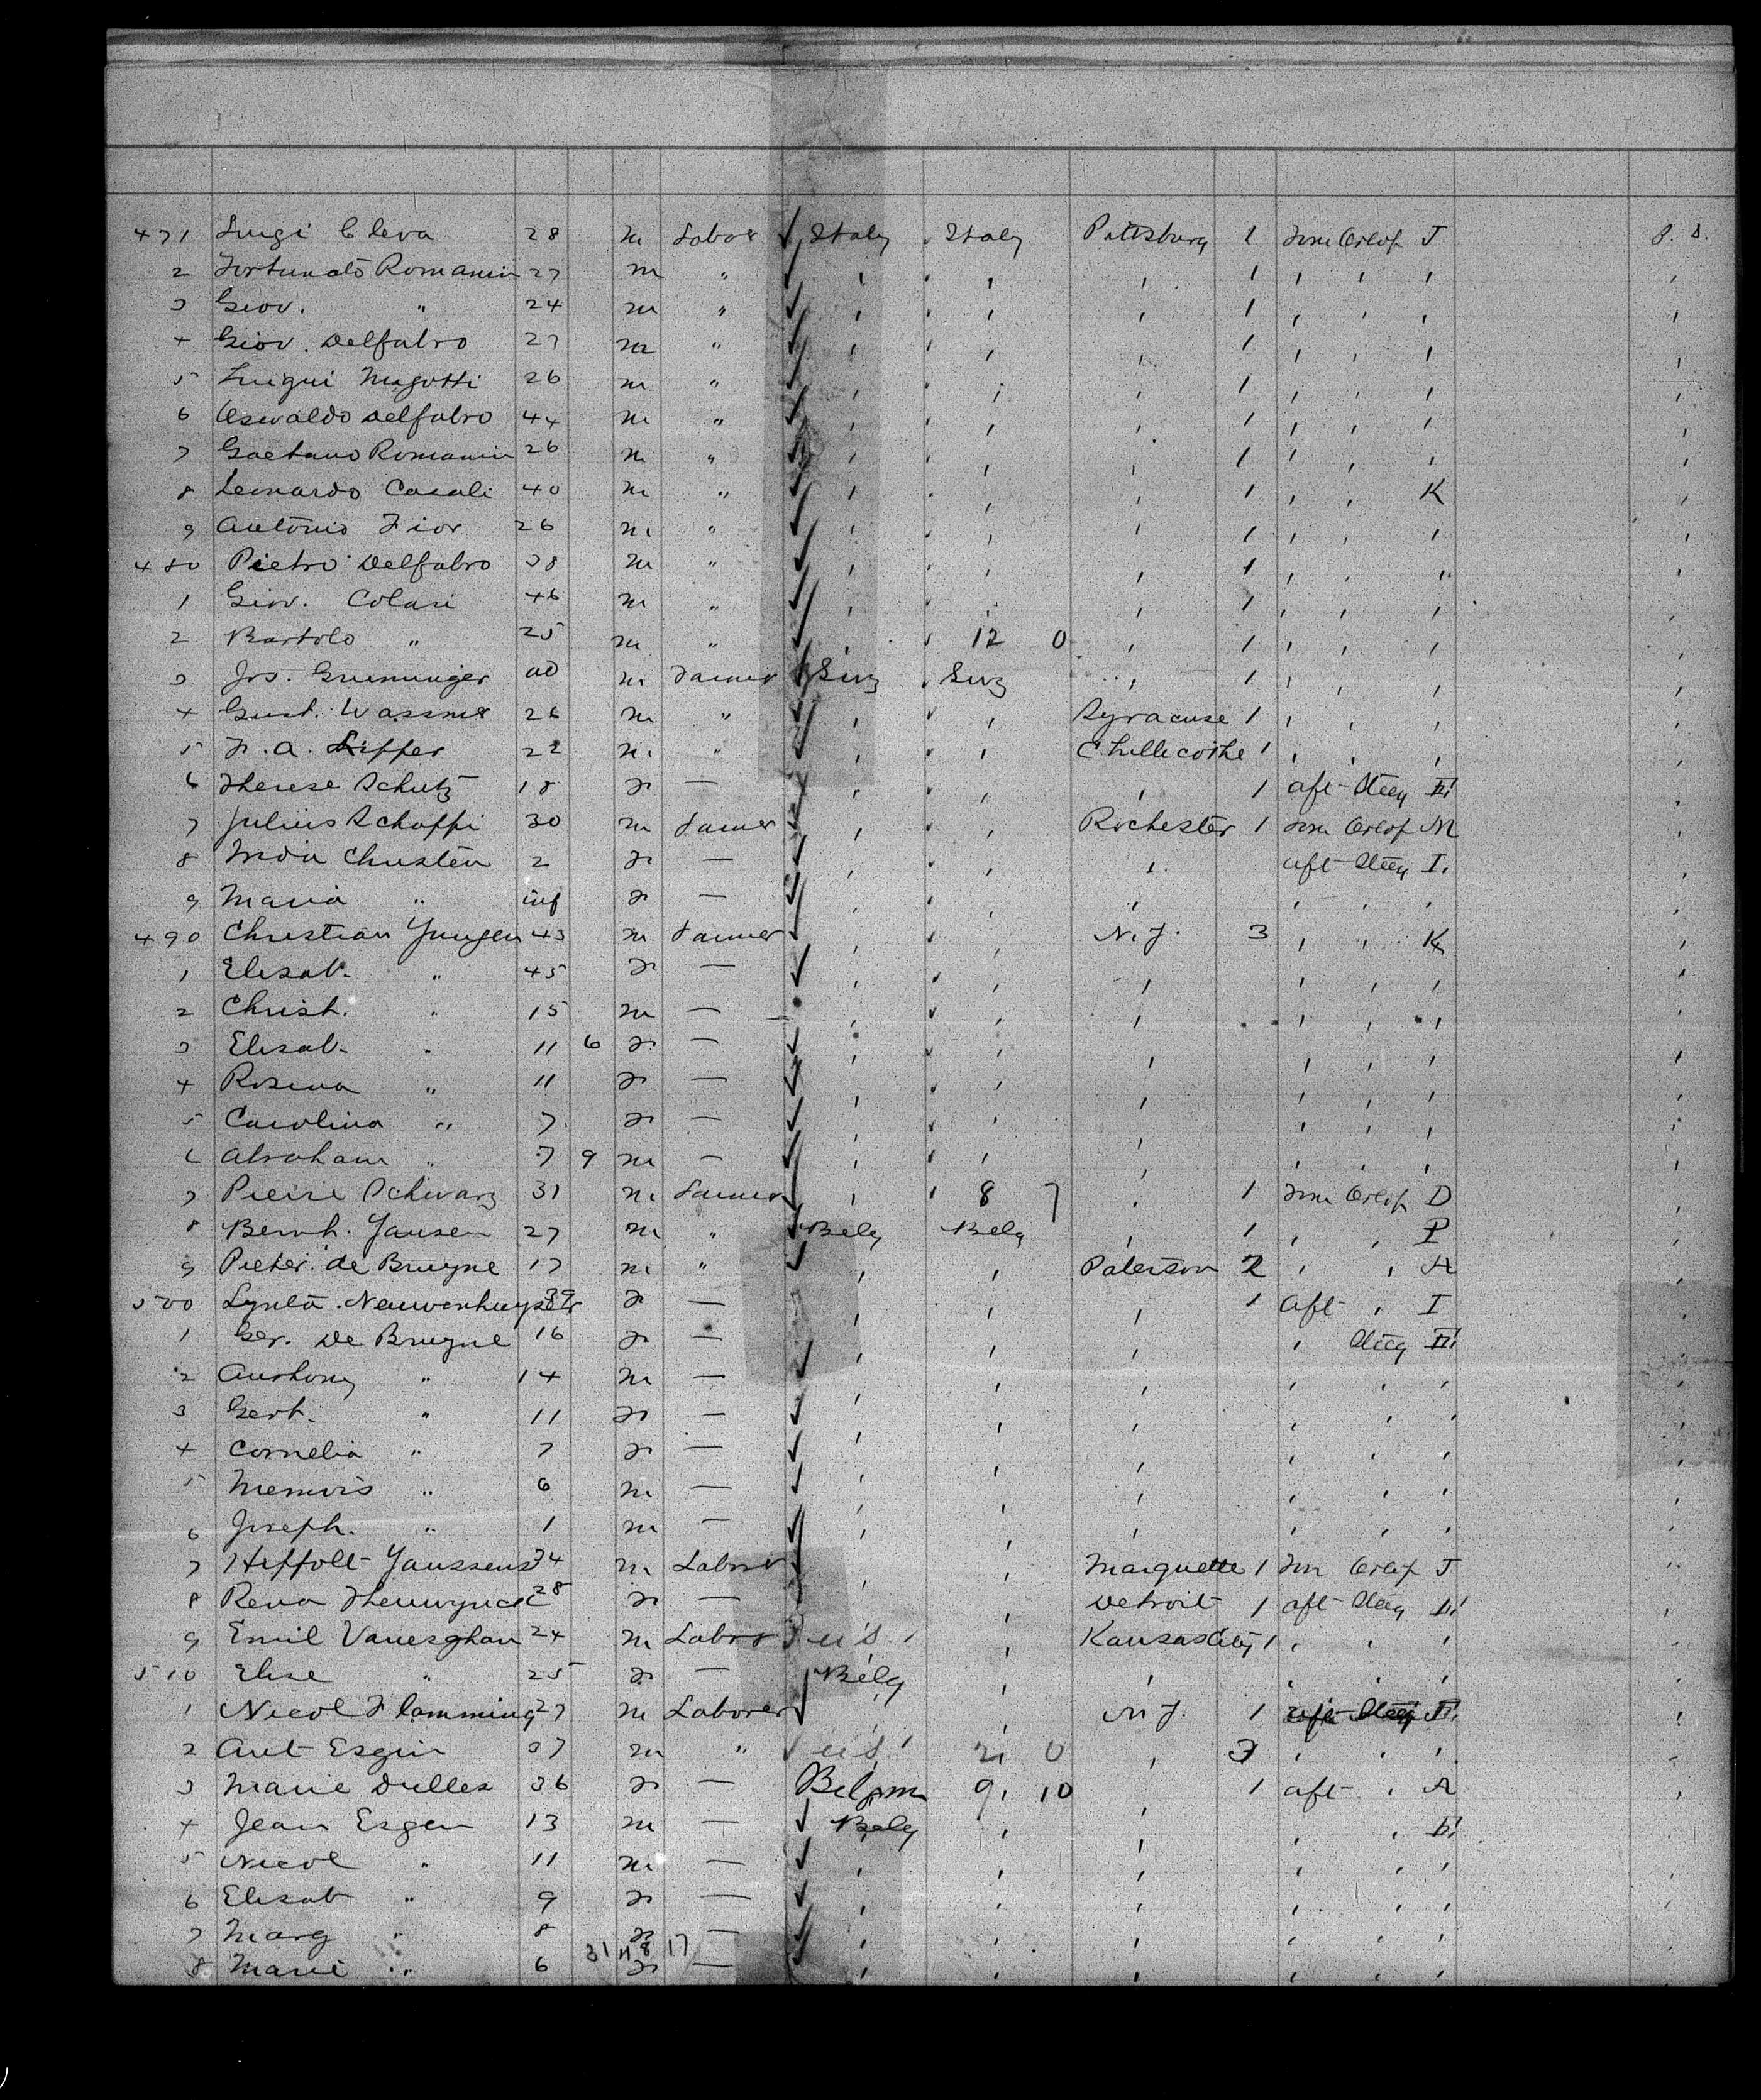 471 Luigi Cleva 28 m Labor ✓ Italy Italy Pittsburg 1 Orlop J P. S.
2 Fortunato Romanin 27 m " ✓ , , , 1 , , , ,
3 Giov. " 24 m " ✓ , , , 1 , , , ,
4 Giov. Delfabro 27 m " ✓ , , , 1 , , , ,
5 Luigui 26 m " ✓ , , , 1 , , , ,
6 Oswaldo Delfabro 44 m " ✓ , , , 1 , , , ,
7 Gaetano Romanin 26 m " ✓ , , , 1 , , , ,
8 Leonardo Casali 40 m " ✓ , , , 1 , , K ,
9 Antonio Fior 26 m " ✓ , , , 1 , , , ,
480 Pietro Delfabro 38 m " ✓ , , , 1 , , " ,
1 Giov. Colari 46 m " ✓ , , , 1 , , , ,
2 Bartolo " 25 m " ✓ , 12 0 , 1 , , , ,
3 Jos. Gruninger 40 m Farmer Swz Swz , 1 , , , ,
4 Gust. Wassmer 26 m " ✓ , , Syracuse 1 , , , ,
5 F. A. 22 m " ✓ , , Chillecothe 1 , , , ,
6 Therese Schutz 18 F — ✓ , , , 1 aft Steeg III ,
7 Julius Schoffi 30 m Farmer ✓ , , Rochester 1 Orlop M ,
8 Christen 2 F — ✓ , , , aft Steeg I. ,
9 Maria " inf F — ✓ , , , , , , ,
490 Christian Jungen 43 m Farmer ✓ , , N. J. 3 , , K ,
1 Elisab. " 45 F — ✓ , , , , , , ,
2 Christ. " 15 m — , , , , , , ,
3 Elisab. " 11 6 F — ✓ , , , , , , ,
4 Rosina " 11 F — ✓ , , , , , , ,
5 Carolina " 7 F — ✓ , , , , , , ,
6 Abraham " 7 9 m — ✓ , , , , , , ,
7 Pierre Schwarz 31 m Farmer ✓ , 8 7 , 1 Orlop D ,
8 Bernh. Jansen 27 m " ✓ Belg Belg , 1 , , P ,
9 Pieter de Bruyne 17 m " ✓ , , Paterson 2 , , A ,
500 F — , , , 1 aft , I ,
1 Ger. De Bruyne 16 F — , , , , Steeg III ,
2 Anthony " 14 m — ✓ , , , , , , ,
3 Gert. " 11 F — ✓ , , , , , , ,
4 Cornelia " 7 F — ✓ , , , , , , ,
5 " 6 m — ✓ , , , , , , ,
6 Joseph. " 1 m — ✓ , , , , , , ,
7 Hippolt Janssens 34 m Labor ✓ , , Marquette 1 Orlop J ,
8 Rena 28 F — , , Detroit 1 aft Steeg III ,
9 Emil 24 m Labor U.S. , Kansas City 1 , , , ,
510 Elise " 25 F — ✓ Belg , , , , , ,
1 Nicol Flamming 27 m Laborer ✓ , , N. J. 1 aft Steeg III ,
2 Ant 37 m " ✓ U.S. 21 0 , 3 , , , ,
3 Marie Dulles 36 F — Belgium 9 10 , 1 aft , A ,
4 Jean Esgen 13 m — ✓ Belg , , , , III ,
5 Nicol " 11 m — ✓ , , , , , , ,
6 Elisab " 9 F — ✓ , , , , , , ,
7 Marg " 8 F — ✓ , , , , , , ,
31 11 8 17
8 Marie " 6 F — ✓ , , , , , , ,